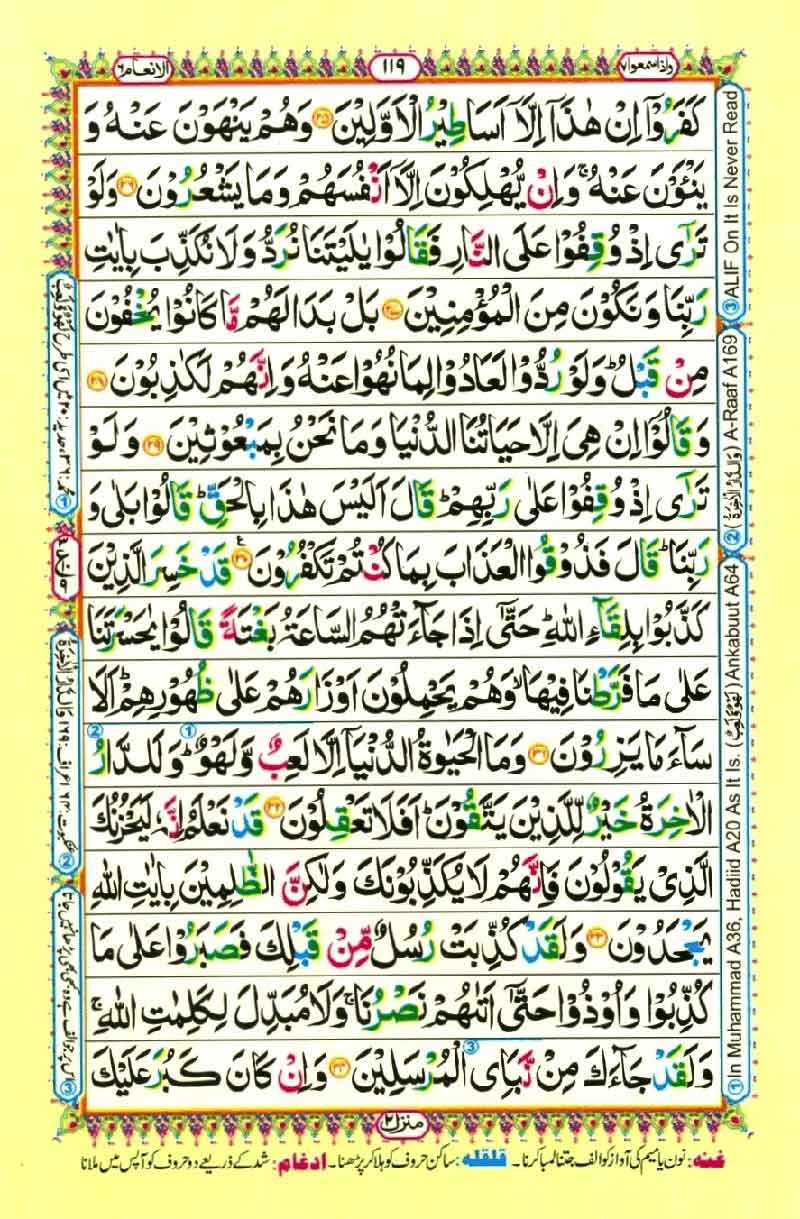 واذا سمعوا ٧
١١٩
الانعام ٦
كَفَرُوْۤا اِنْ هٰذَاۤ اِلَّاۤ اَسَاطِيْرُ الْاَوَّلِيْنَ ۝۲۵ وَهُمْ يَنْهَوْنَ عَنْهُ وَ
يَنْـَٔوْنَ عَنْهُ ۚ وَاِنْ يُّهْلِكُوْنَ اِلَّاۤ اَنْفُسَهُمْ وَمَا يَشْعُرُوْنَ ۝۲۶ وَلَوْ
تَرٰۤى اِذْ وُقِفُوْا عَلَى النَّارِ فَقَالُوْا يٰلَيْتَنَا نُرَدُّ وَلَا نُكَذِّبَ بِاٰيٰتِ
رَبِّنَا وَنَكُوْنَ مِنَ الْمُؤْمِنِيْنَ ۝۲۷ بَلْ بَدَا لَهُمْ مَّا كَانُوْا يُخْفُوْنَ
مِنْ قَبْلُ ؕ وَلَوْ رُدُّوْا لَعَادُوْا لِمَا نُهُوْا عَنْهُ وَاِنَّهُمْ لَكٰذِبُوْنَ ۝۲۸
وَقَالُوْۤا اِنْ هِىَ اِلَّا حَيَاتُنَا الدُّنْيَا وَمَا نَحْنُ بِمَبْعُوْثِيْنَ ۝۲۹ وَلَوْ
تَرٰۤى اِذْ وُقِفُوْا عَلٰى رَبِّهِمْ ؕ قَالَ اَلَيْسَ هٰذَا بِالْحَقِّ ؕ قَالُوْا بَلٰى وَ
رَبِّنَا ؕ قَالَ فَذُوْقُوا الْعَذَابَ بِمَا كُنْتُمْ تَكْفُرُوْنَ ۝۳۰ قَدْ خَسِرَ الَّذِيْنَ
كَذَّبُوْا بِلِقَآءِ اللّٰهِ ؕ حَتّٰۤى اِذَا جَآءَتْهُمُ السَّاعَةُ بَغْتَةً قَالُوْا يٰحَسْرَتَنَا
عَلٰى مَا فَرَّطْنَا فِيْهَا ۙ وَهُمْ يَحْمِلُوْنَ اَوْزَارَهُمْ عَلٰى ظُهُوْرِهِمْ ؕ اَلَا
سَآءَ مَا يَزِرُوْنَ ۝۳۱ وَمَا الْحَيٰوةُ الدُّنْيَاۤ اِلَّا لَعِبٌ وَّلَهْوٌ ؕ وَلَلدَّارُ
الْاٰخِرَةُ خَيْرٌ لِّلَّذِيْنَ يَتَّقُوْنَ ؕ اَفَلَا تَعْقِلُوْنَ ۝۳۲ قَدْ نَعْلَمُ اِنَّهٗ لَيَحْزُنُكَ
الَّذِىْ يَقُوْلُوْنَ فَاِنَّهُمْ لَا يُكَذِّبُوْنَكَ وَلٰكِنَّ الظّٰلِمِيْنَ بِاٰيٰتِ اللّٰهِ
يَجْحَدُوْنَ ۝۳۳ وَلَقَدْ كُذِّبَتْ رُسُلٌ مِّنْ قَبْلِكَ فَصَبَرُوْا عَلٰى مَا
كُذِّبُوْا وَاُوْذُوْا حَتّٰۤى اَتٰىهُمْ نَصْرُنَا ۚ وَلَا مُبَدِّلَ لِكَلِمٰتِ اللّٰهِ ۚ
وَلَقَدْ جَآءَكَ مِنْ نَّبَاِى الْمُرْسَلِيْنَ ۝۳۴ وَاِنْ كَانَ كَبُرَ عَلَيْكَ
① In Muhammad A36, Hadiid A20 As It Is. (لَهْوٌ وَّلَعِبٌ) Ankabuut A64
② (وَالدَّارُ الْاٰخِرَةُ) A-Raaf A169
③ ALIF On It Is Never Read
منزل ٢
غنه: نون یا میم کی آواز کو الف جتنا لمبا کرنا۔ قلقله: ساکن حروف کو ہلا کر پڑھنا۔ ادغام: شد کے ذریعے دو حروف کو آپس میں ملانا